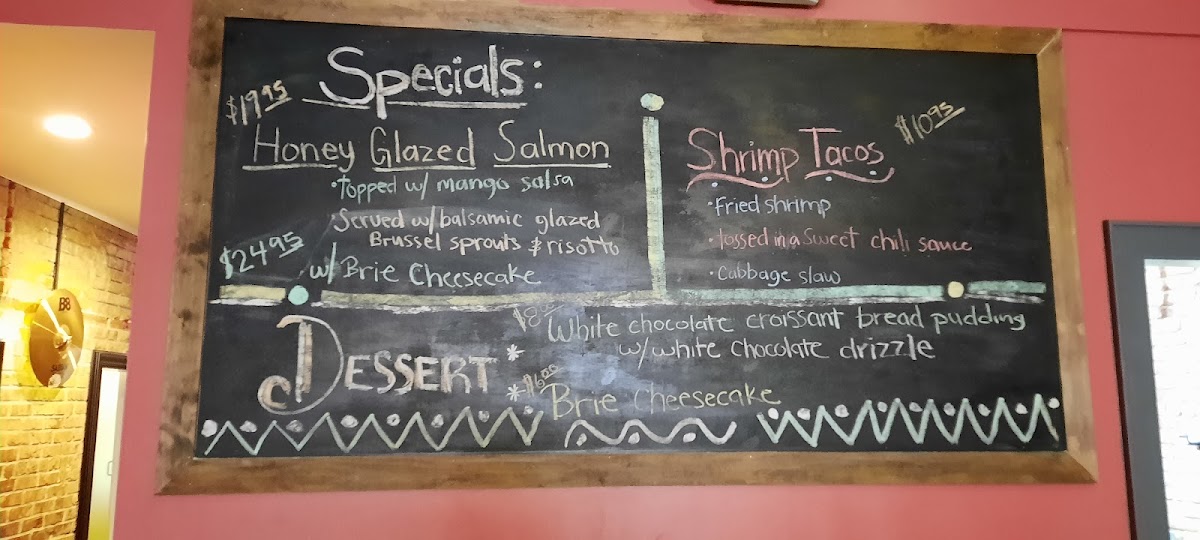 Specials:
$19.95
Honey Glazed Salmon
•topped w/ mango salsa
•Served w/balsamic glazed
Brussel sprouts & risotto
$24.95
w/ Brie Cheesecake
$10.95
Shrimp Tacos
•Fried shrimp
•tossed in a Sweet chili sauce
•Cabbage slaw
DESSERT
* White chocolate croissant bread pudding
w/ white chocolate drizzle
* $6.00
Brie Cheesecake
B8